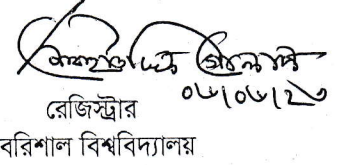 ০৮/০৮/২৩
রেজিস্ট্রার
বরিশাল বিশ্ববিদ্যালয়